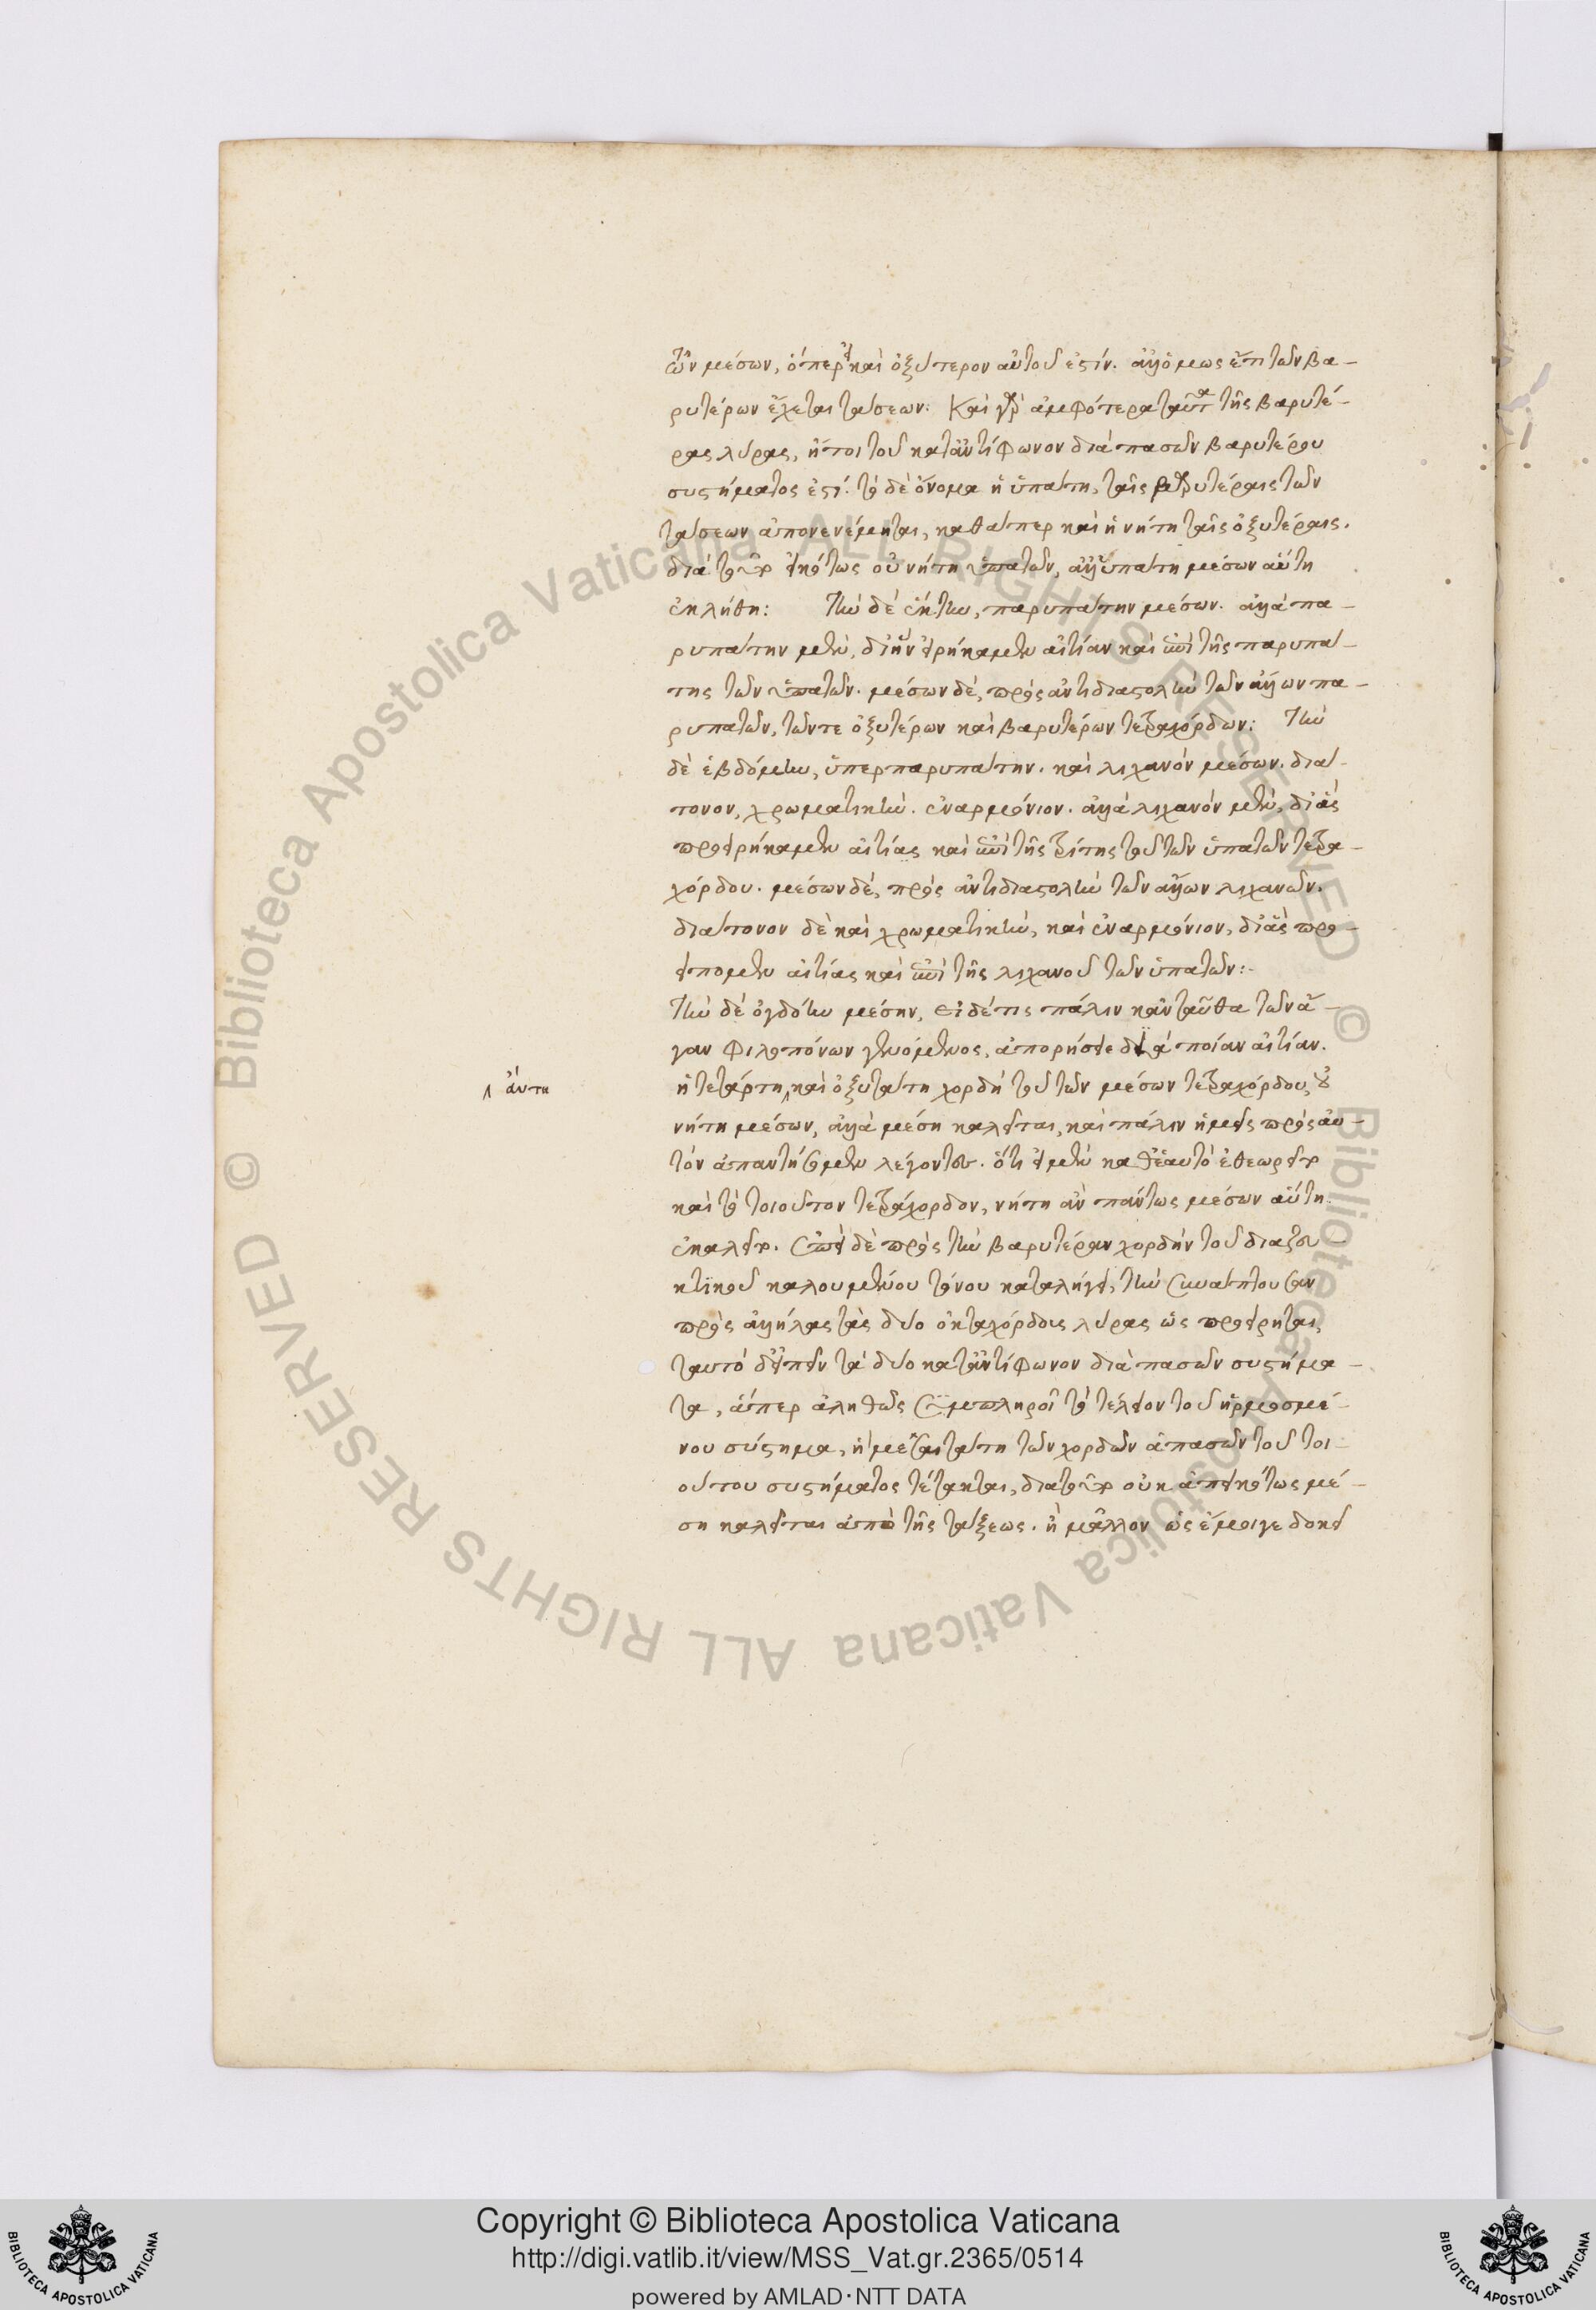 τῶν μέσων, ὅπερ εἰ καὶ ὀξύτερον αὐτοῦ ἐστίν. ἀλλ' ὅμως ἔτι τῶν βα-
ρυτέρων ἔχεται τάσεων: Καὶ γὰρ ἀμφότερα ταῦτα τῆς βαρυτέ-
ρας λύρας, ἤτοι τοῦ κατ' ἀντίφωνον διὰ πασῶν βαρυτέρου
συστήματος ἐστί. τὸ δὲ ὄνομα ἡ ὑπάτη, ταῖς βαρυτέραις τῶν
τάσεων ἀπονενέμηται, καθάπερ καὶ ἡ νήτη ταῖς ὀξυτέραις.
διὰ τοῦτο εἰκότως οὐ νήτη ὑπατῶν, ἀλλ' ὑπάτη μέσων αὕτη
ἐκλήθη: Τὴν δὲ ἕκτην, παρυπάτην μέσων. ἀλλὰ πα-
ρυπάτην μὲν, δι' ἣν εἰρήκαμεν αἰτίαν καὶ ἐπὶ τῆς παρυπά-
της τῶν ὑπατῶν. μέσων δὲ, πρὸς ἀντιδιαστολὴν τῶν ἄλλων πα-
ρυπατῶν, τῶν τε ὀξυτέρων καὶ βαρυτέρων τετραχόρδων: Τὴν
δὲ ἑβδόμην, ὑπερπαρυπάτην. καὶ λιχανὸν μέσων. διά-
τονον, χρωματικὴν. ἐναρμόνιον. ἀλλὰ λιχανὸν μὲν, δι' ἃς
προειρήκαμεν αἰτίας καὶ ἐπὶ τῆς τρίτης τοῦ τῶν ὑπατῶν τετρα-
χόρδου. μέσων δὲ, πρὸς ἀντιδιαστολὴν τῶν ἄλλων λιχανῶν.
διάτονον δὲ καὶ χρωματικὴν, καὶ ἐναρμόνιον, δι' ἃς προ-
είπομεν αἰτίας καὶ ἐπὶ τῆς λιχανοῦ τῶν ὑπατῶν:-
Τὴν δὲ ὀγδόην μέσην, εἰ δέ τις πάλιν κἀνταῦθα τῶν ἄ-
γαν φιλοπόνων γενόμενος, ἀπορήσειε διὰ ποίαν αἰτίαν.
ἡ τετάρτη, καὶ ὀξυτάτη χορδὴ τοῦ τῶν μέσων τετραχόρδου, οὐ
⁁ αὕτη
νήτη μέσων, ἀλλὰ μέση καλεῖται, καὶ πάλιν ἡμεῖς πρὸς αὐ-
τὸν ἀπαντήσομεν λέγοντες. ὅτι εἰ μὲν καθ' ἑαυτὸ ἐθεωρεῖτο
καὶ τὸ τοιοῦτον τετράχορδον, νήτη ἂν πάντως μέσων αὕτη
ἐκαλεῖτο. ἐπεὶ δὲ πρὸς τὴν βαρυτέραν χορδὴν τοῦ διαζευ-
κτικοῦ καλουμένου τόνου καταλήγει, τὴν συνάπτουσαν
πρὸς ἀλλήλας τὰς δύο ὀκταχόρδους λύρας ὡς προείρηται,
ταυτὸ δ' εἰπεῖν τὰ δύο κατ' ἀντίφωνον διὰ πασῶν συστήμα-
τα, ἅπερ ἀληθῶς συμπληροῖ τὸ τέλειον τοῦ ἡρμοσμέ-
νου σύστημα, ἡ μεσαιτάτη τῶν χορδῶν ἁπασῶν τοῦ τοι-
ούτου συστήματος τέτακται, διὰ τοῦτο οὐκ ἀπεικότως μέ-
ση καλεῖται ἀπὸ τῆς τάξεως. ἢ μᾶλλον ὡς ἔμοιγε δοκεῖ
Copyright © Biblioteca Apostolica Vaticana
http://digi.vatlib.it/view/MSS_Vat.gr.2365/0514
powered by AMLAD·NTT DATA
BIBLIOTECA APOSTOLICA VATICANA
BIBLIOTECA APOSTOLICA VATICANA
© Biblioteca Apostolica Vaticana ALL RIGHTS RESERVED © Biblioteca Apostolica Vaticana ALL RIGHTS RESERVED